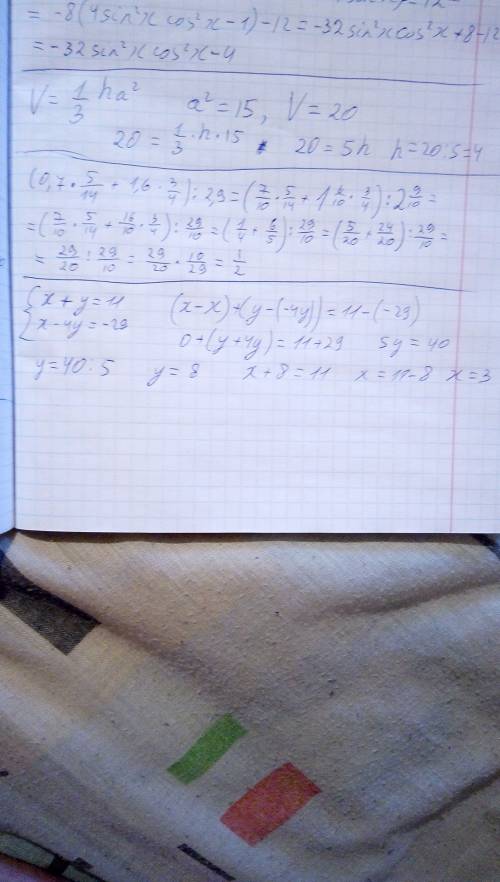 = -8(4sin²x cos²x-1)-12 = -32sin²xcos²x+8-12
= -32sin²x cos²x-4
V = 1/3 ha² a² = 15, V = 20
20 = 1/3 · h · 15 20 = 5h h = 20:5 = 4
(0,7 · 5/14 + 1,6 · 3/4) : 2,9 = (7/10 · 5/14 + 1 6/10 · 3/4) : 2 9/10 =
= (7/10 · 5/14 + 16/10 · 3/4) : 29/10 = (1/4 + 6/5) : 29/10 = (5/20 + 24/20) : 29/10 =
= 29/20 : 29/10 = 29/20 · 10/29 = 1/2
{x + y = 11 (x-x)+(y-(-4y)) = 11-(-29)
x-4y = -29 0+(y+4y) = 11+29 5y = 40
y = 40:5 y = 8 x+8 = 11 x = 11-8 x = 3